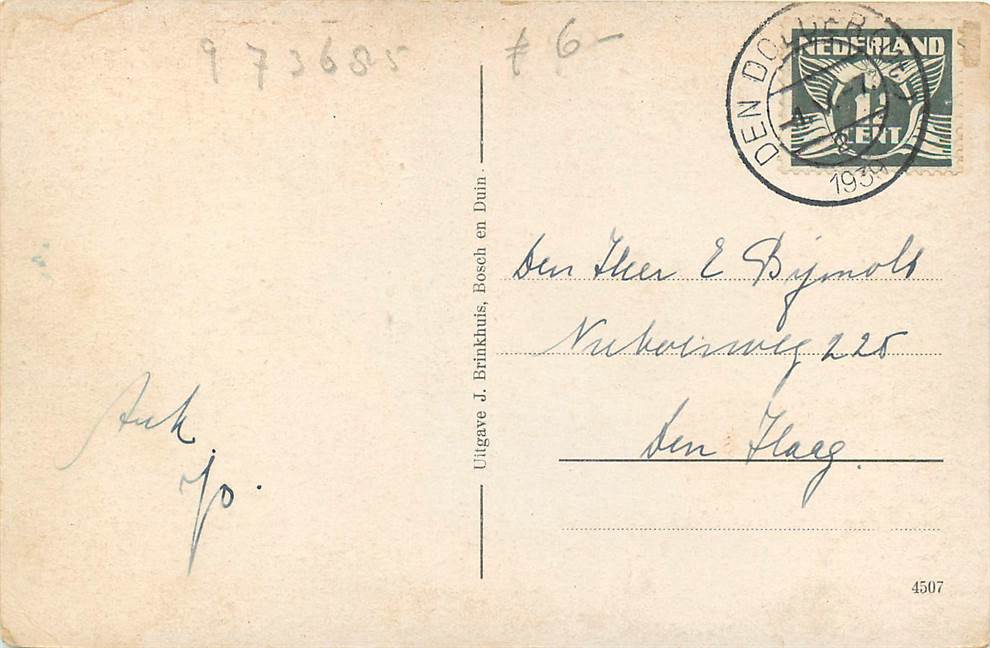 973685 f 6-
DEN DOLDER
1939
NEDERLAND
1½
CENT
Den Heer E Bijmolt
225
Den Haag.
Jo.
Uitgave J. Brinkhuis, Bosch en Duin
4507